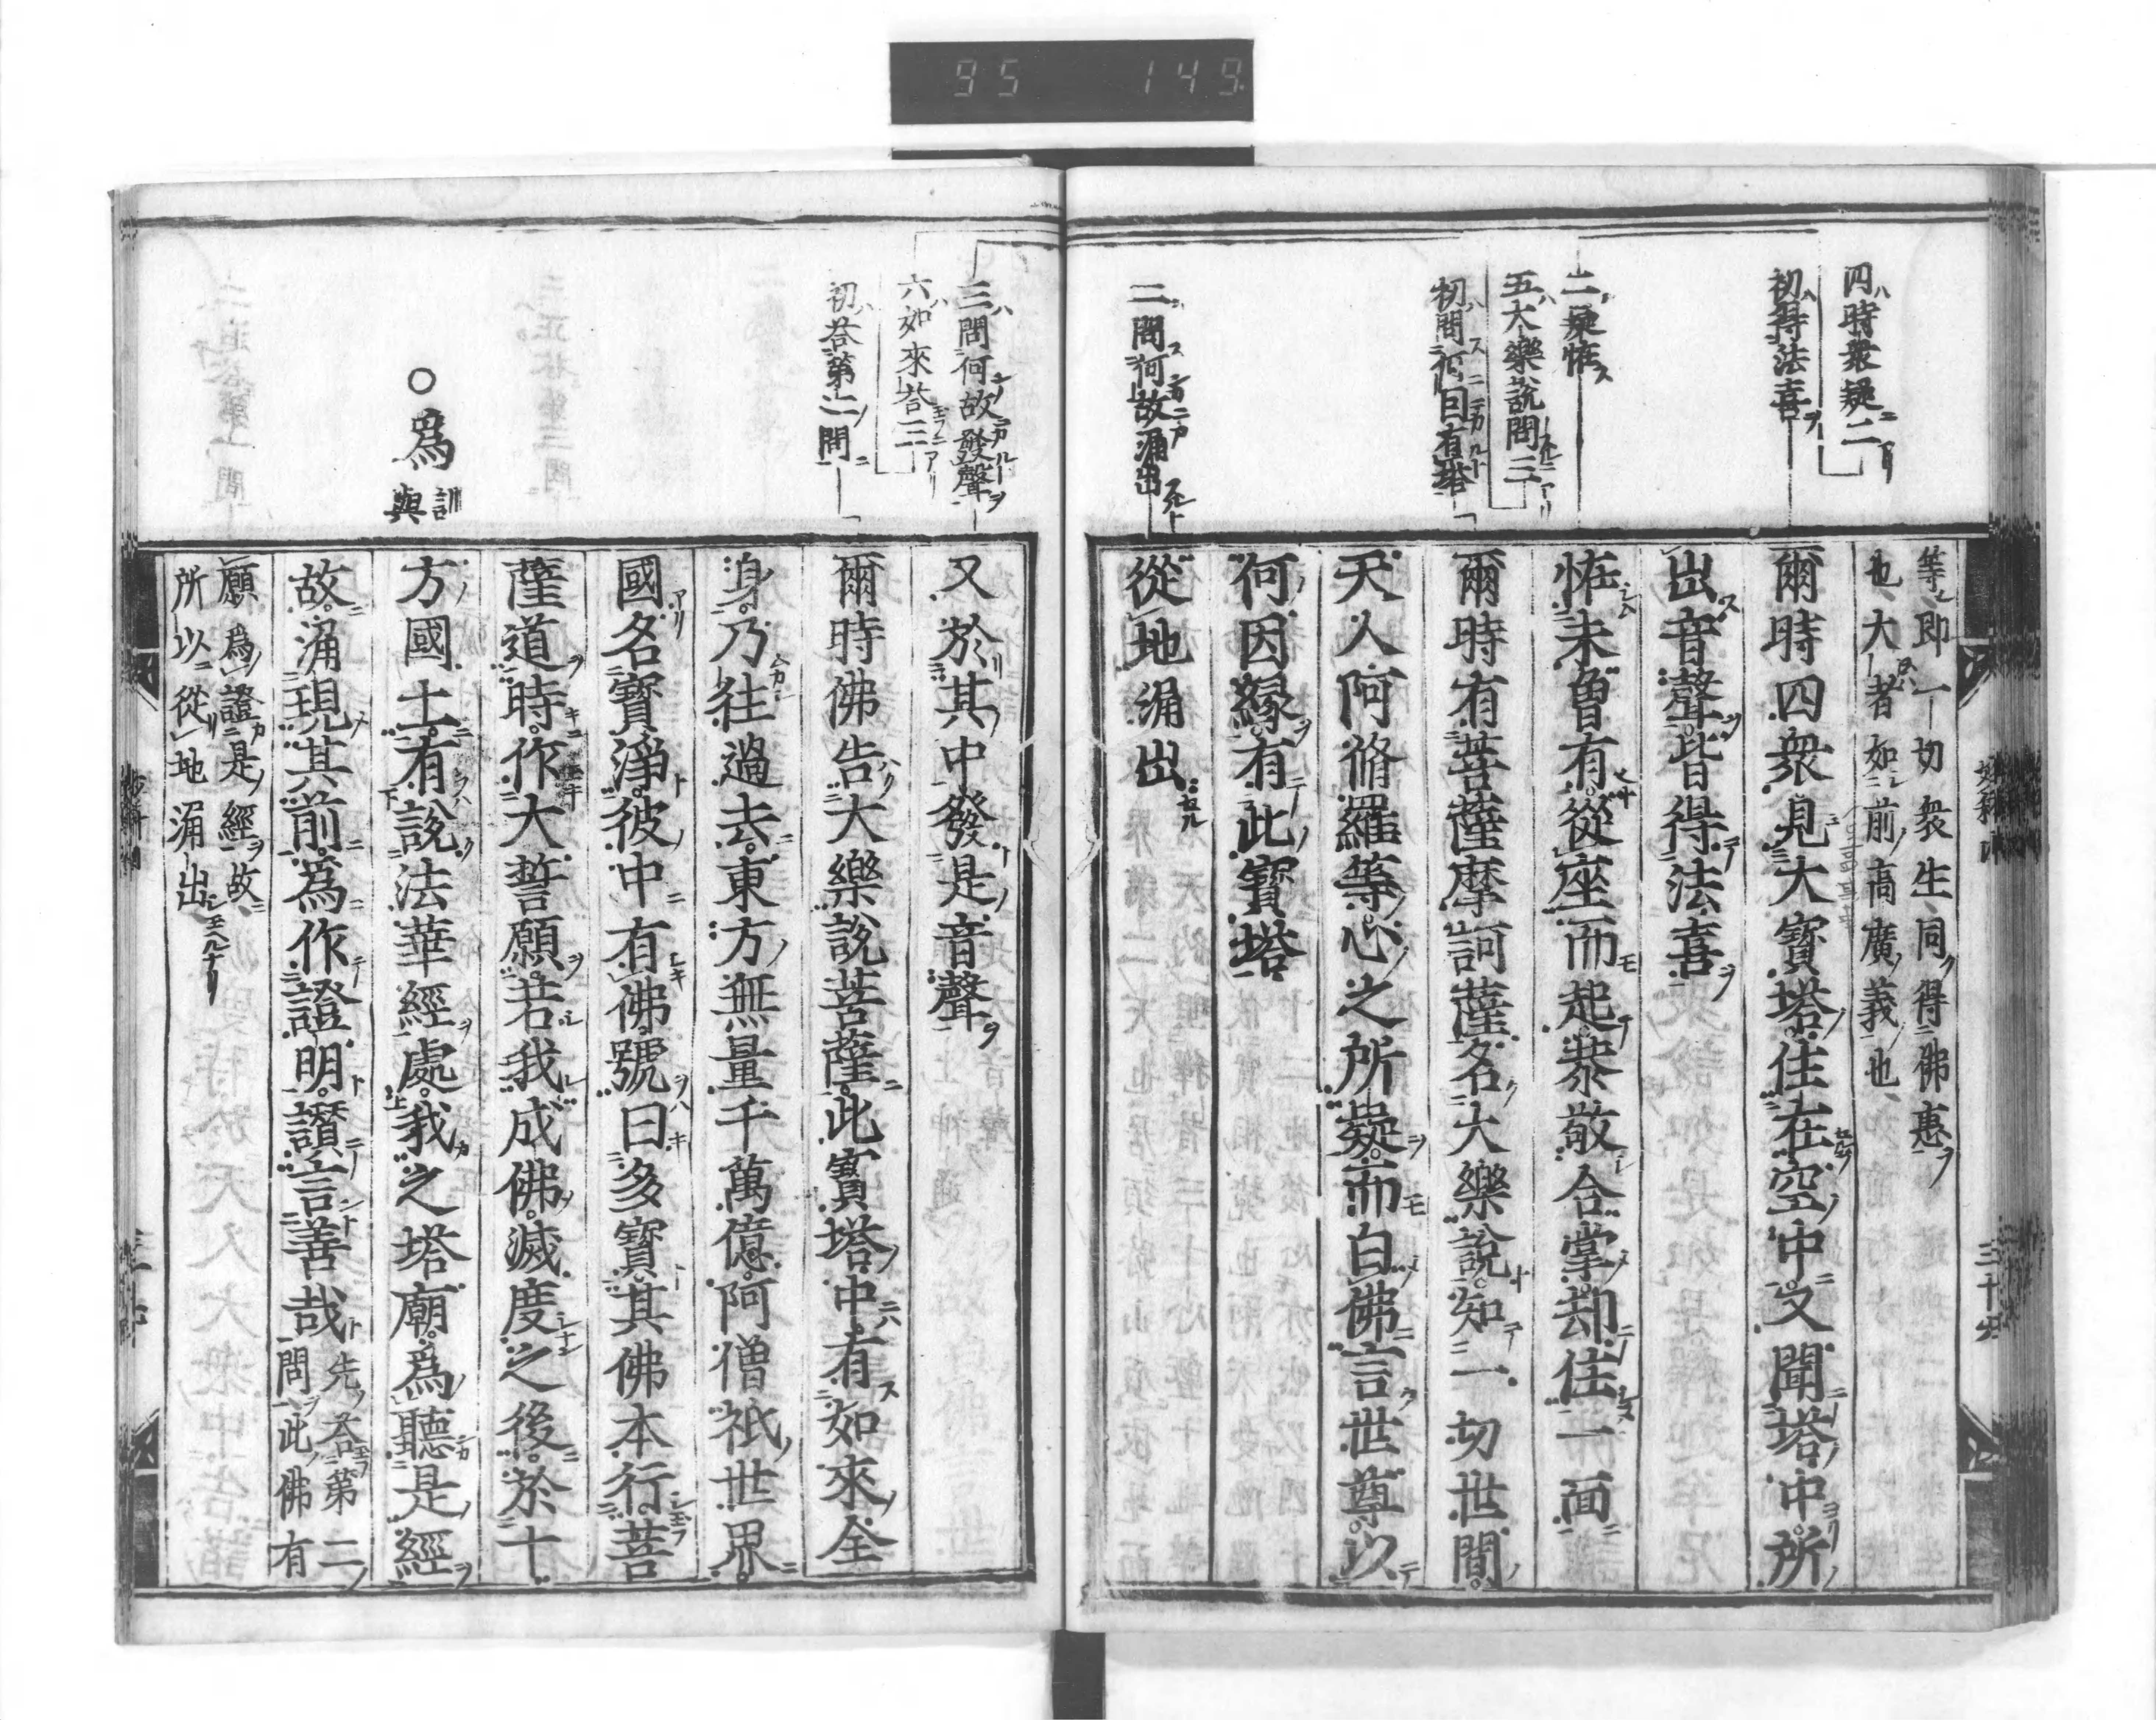 95 149
四時衆疑二
初得法喜
二疑恠
五大樂説問三
初問何因有塔
二問何故涌出
等即一切衆生同得佛惠
也大者如前高廣義也
爾時四衆見大寶塔住在空中又聞塔中所
出音聲皆得法喜
恠未曾有從座而起恭敬合掌却住一面
爾時有菩薩摩訶薩名大樂說知一切世間
天人阿脩羅等心之所疑而白佛言世尊以
何因縁有此寶塔
從地涌出
三問何故發聲
六如來荅三
初荅第二問
○爲 訓與
又於其中發是音聲
爾時佛告大樂說菩薩此寶塔中有如來全
身乃往過去東方無量千萬億阿僧祇世界
國名寶淨彼中有佛號曰多寶其佛本行菩
薩道時作大誓願若我成佛滅度之後於十
方國土有說法華經處我之塔廟爲聽是經
故涌現其前爲作證明讃言善哉 先荅第二問此佛有
願爲證是經故
所以從地涌出